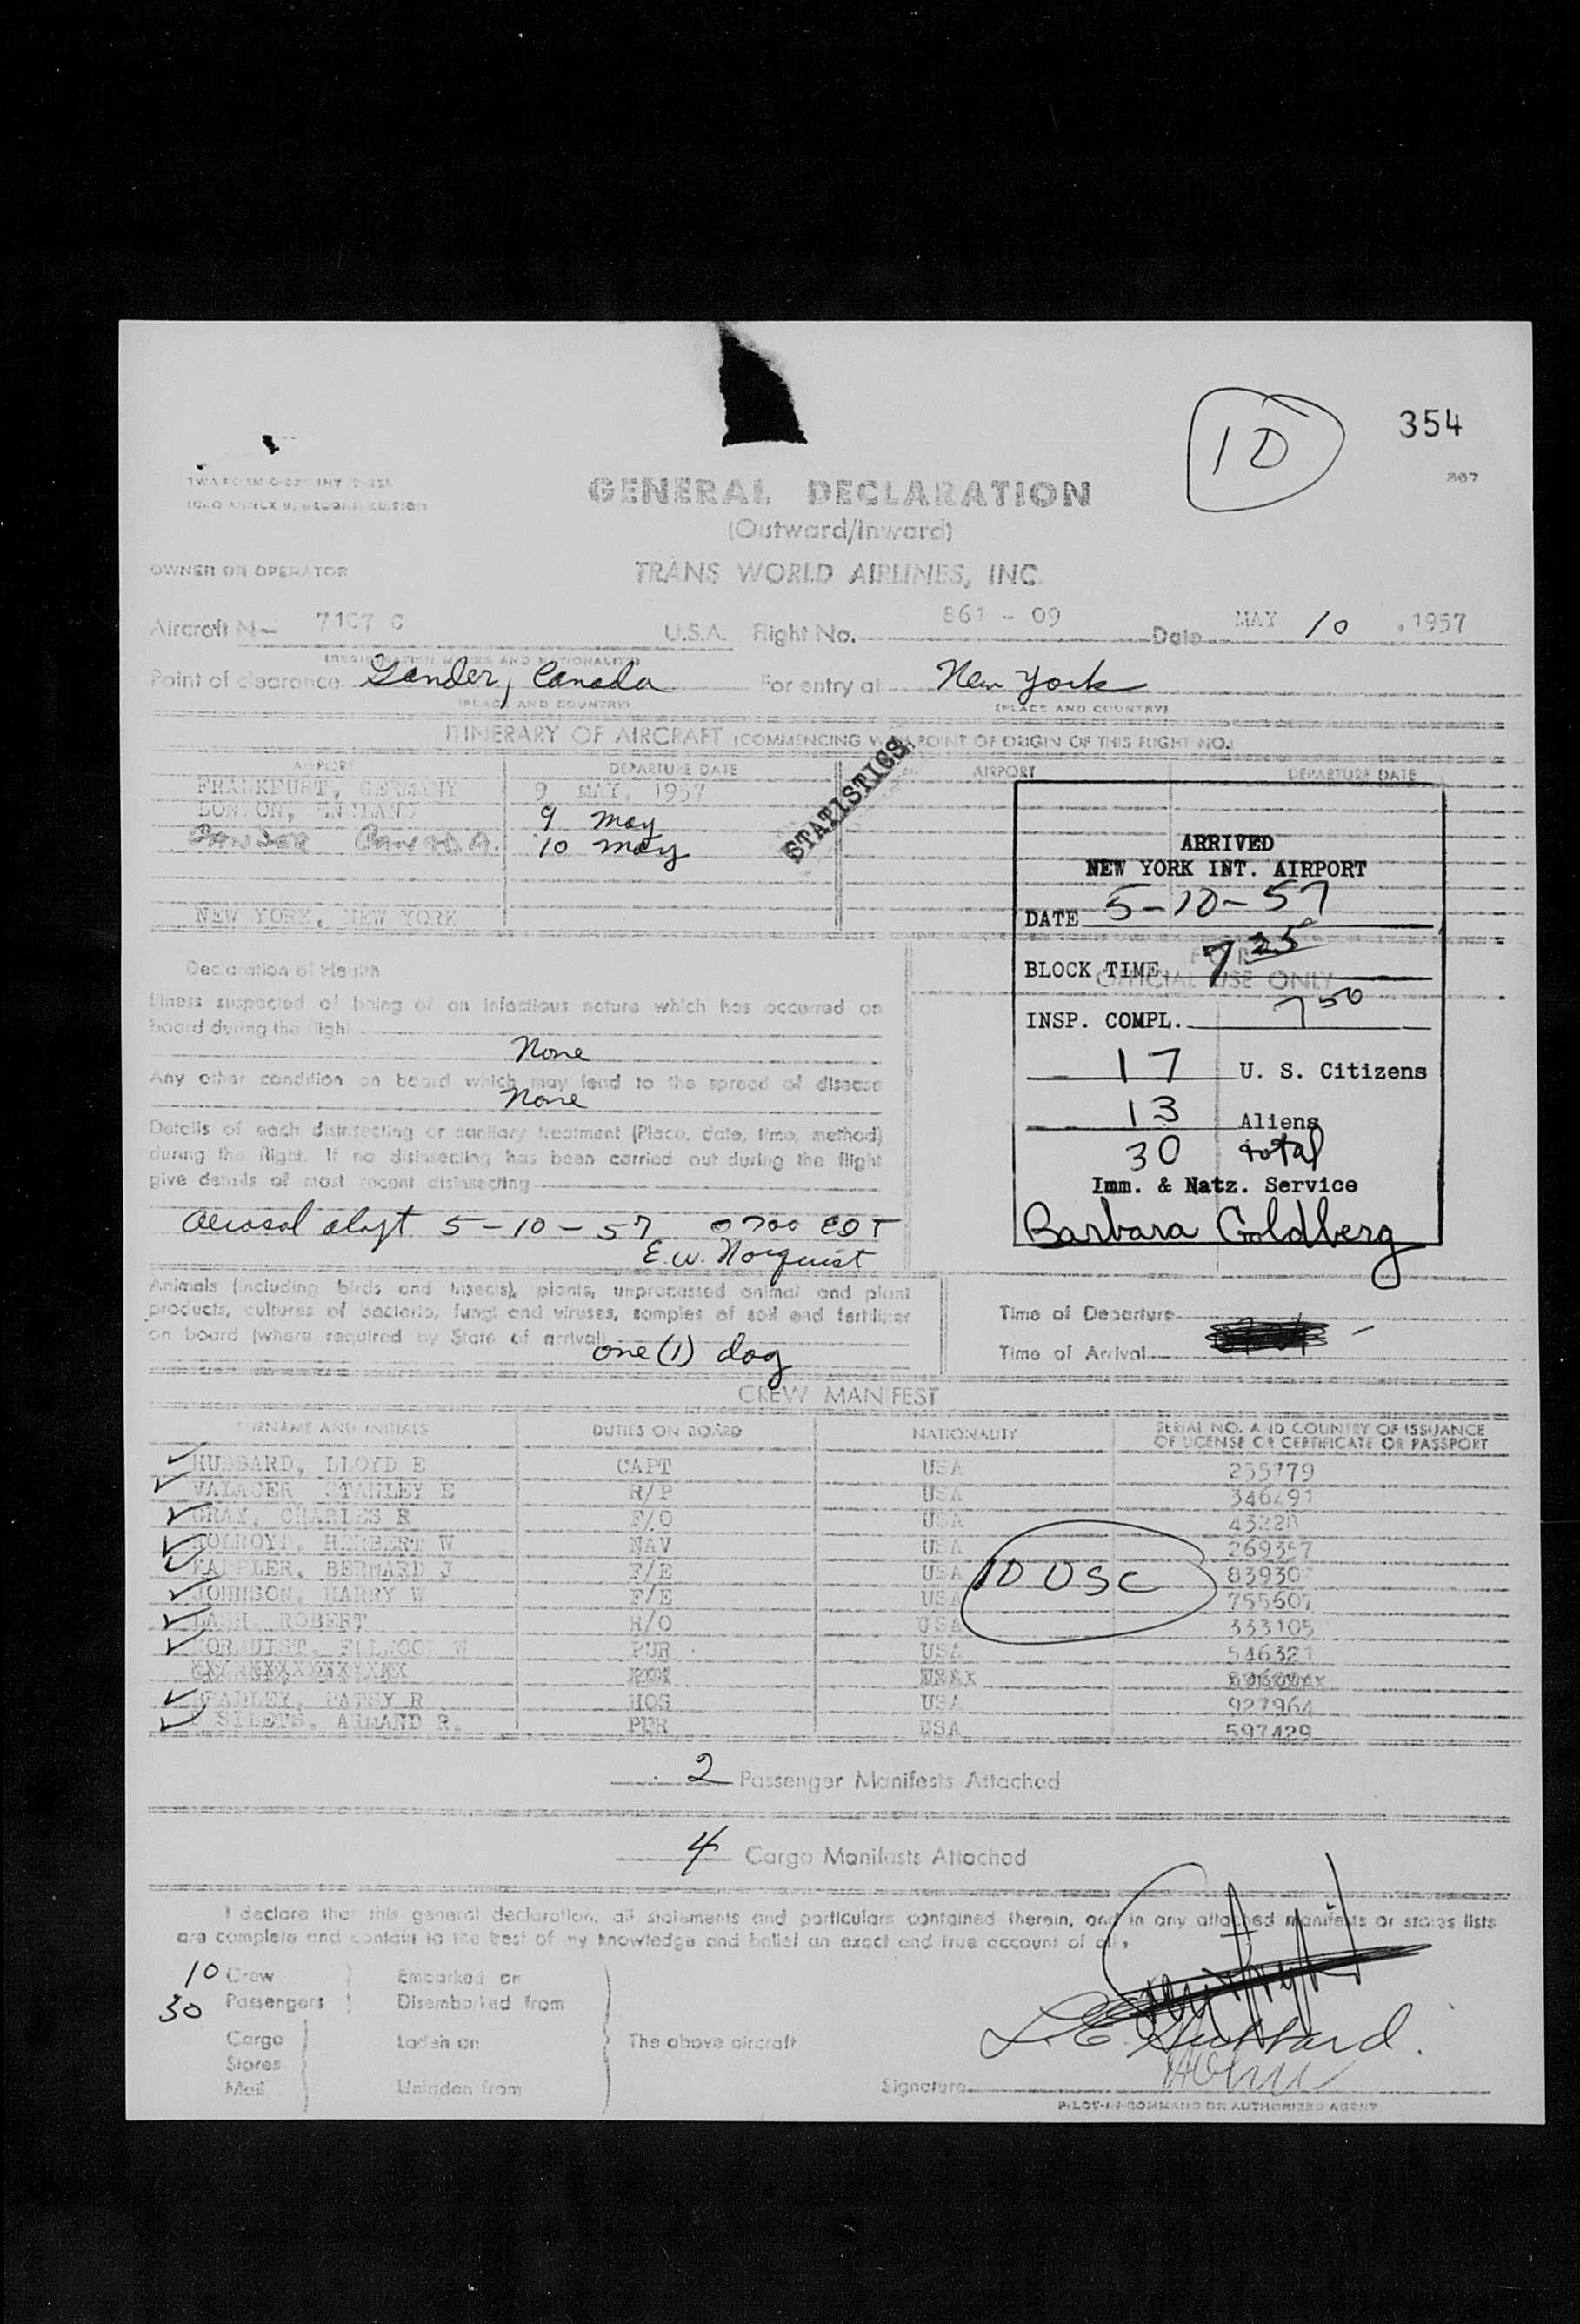 10
354
867
GENERAL DECLARATION
(Outward/Inward)
OWNER OR OPERATOR
TRANS WORLD AIRLINES, INC.
Aircraft N- 7107 C U.S.A. Flight No. 861 - 09 Date MAY 10, 1957
Point of clearance Gander, Canada For entry at New York
(PLACE AND COUNTRY) (PLACE AND COUNTRY)
ITINERARY OF AIRCRAFT (COMMENCING WITH POINT OF ORIGIN OF THIS FLIGHT NO.)
AIRPORT DEPARTURE DATE AIRPORT DEPARTURE DATE
FRANKFURT, GERMANY 9 MAY, 1957
LONDON, ENGLAND 9 May
GANDER CANADA. 10 May
NEW YORK, NEW YORK
STATISTICS
ARRIVED
NEW YORK INT. AIRPORT
DATE 5-10-57
FOR
OFFICIAL USE ONLY
BLOCK TIME 7 25
INSP. COMPL. 7 50
17 U. S. Citizens
13 Aliens
30 total
Imm. & Natz. Service
Barbara Goldberg
Declaration of Health
Illness suspected of being of an infectious nature which has occurred on
board during the flight
None
Any other condition on board which may lead to the spread of disease
None
Details of each disinsecting or sanitary treatment (Place, date, time, method)
during the flight. If no disinsecting has been carried out during the flight
give details of most recent disinsecting
Aerosol 5-10-57 0700 EDT
E.W. Norquist
Animals (including birds and insects), plants, unprocessed animal and plant
products, cultures of bacteria, fungi and viruses, samples of soil and fertilizer
on board (where required by State of arrival)
one (1) dog
Time of Departure
Time of Arrival
CREW MANIFEST
SURNAME AND INITIALS DUTIES ON BOARD NATIONALITY SERIAL NO. AND COUNTRY OF ISSUANCE
OF LICENSE OR CERTIFICATE OR PASSPORT
HUBBARD, LLOYD E CAPT USA 255779
STANLEY E R/P USA 346491
GRAY, CHARLES R F/O USA 43228
HOLROYD, HERBERT W NAV USA 269357
KAPPLER, BERNARD J F/E USA 839307
JOHNSON, HARRY W F/E USA 755607
LASH, ROBERT R/O USA 333105
NORQUIST, ELLWOOD W PUR USA 546321
PATSY R HOS USA 927964
ARMAND R. PUR USA 597429
10 USC
2 Passenger Manifests Attached
4 Cargo Manifests Attached
I declare that this general declaration, all statements and particulars contained therein, and in any attached manifests or stores lists
are complete and contain to the best of my knowledge and belief an exact and true account of all,
10 Crew Embarked on
30 Passengers Disembarked from
Cargo Laden on The above aircraft
Stores
Mail Unladen from
L.E. Hubbard.
Signature
PILOT-IN-COMMAND OR AUTHORIZED AGENT